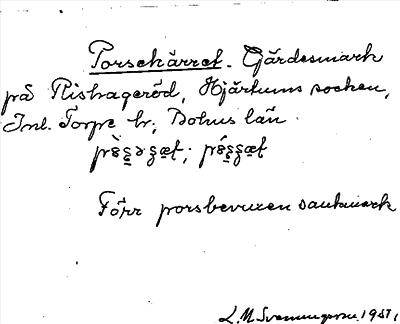 Porsekärret. Gärdesmark
på Ristrageröd, Hjärtums socken,
Inl. Torpe hr, Bohus län.
Förr porsbevuxen sankmark
L.M. Svenungsson 1951